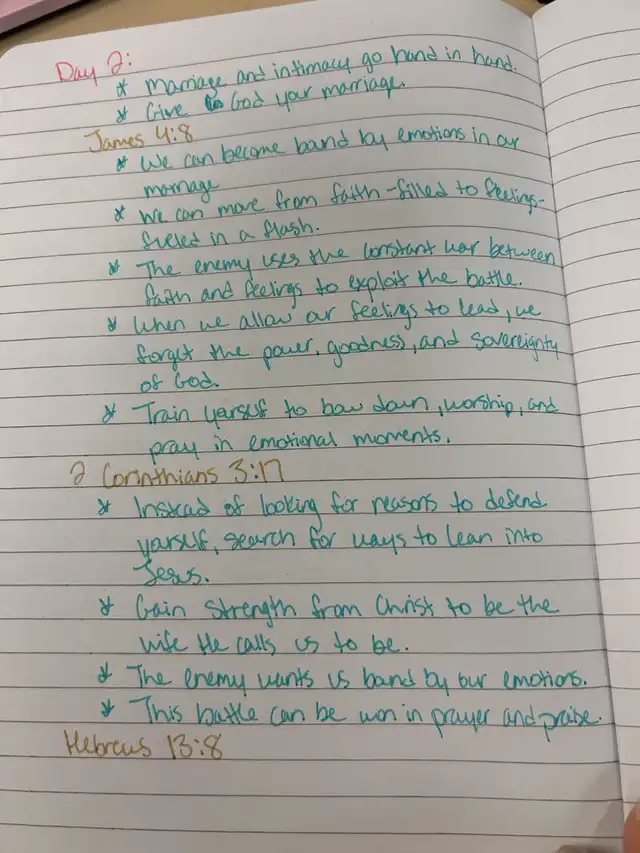 Day 2:
* Marriage and intimacy go hand in hand.
* Give to God your marriage.
James 4:8
* We can become bound by emotions in our
marriage
* We can move from faith-filled to feelings-
fueled in a flash.
* The enemy uses the constant war between
faith and feelings to exploit the battle.
* When we allow our feelings to lead, we
forget the power, goodness, and sovereignty
of God.
* Train yourself to bow down, worship, and
pray in emotional moments.
2 Corinthians 3:17
* Instead of looking for reasons to defend
yourself, search for ways to lean into
Jesus.
* Gain strength from Christ to be the
wife He calls us to be.
* The enemy wants us bound by our emotions.
* This battle can be won in prayer and praise.
Hebrews 13:8